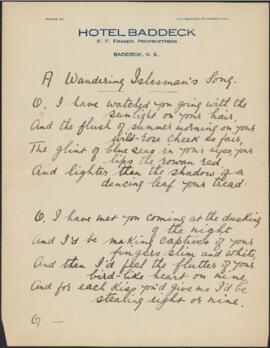 HOTEL BADDECK
F. F. FRASER, PROPRIETRESS
BADDECK, N. S.
A Wandering Islesman's Song.
O, I have watched you going with the
sunlight on your hair,
And the flush of summer morning on your
wild-rose cheek so fair,
The glint of blue seas in your eyes, your
lips the rowan red
And lighter than the shadow of a
dancing leaf your tread.
O, I have met you coming at the dusking
of the night
And I'd be making captives of your
fingers slim and white,
And then I'd feel the flutter of your
bird-like heart on mine
And for each kiss you'd give me I'd be
stealing eight or nine.